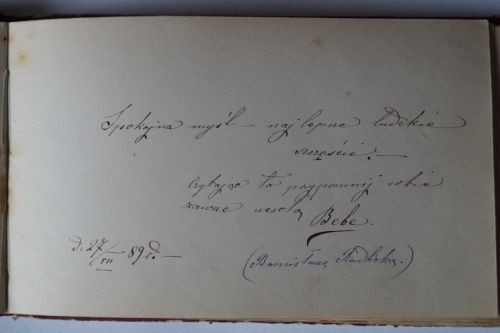 Spokojna myśl – najlepsze ludzkie
szczęście. –
Czytając to przypomnij sobie
zawsze wesołą
Bebe.
d. 27/VII – 89 r. –
(Bronisławę Rudlicką.)